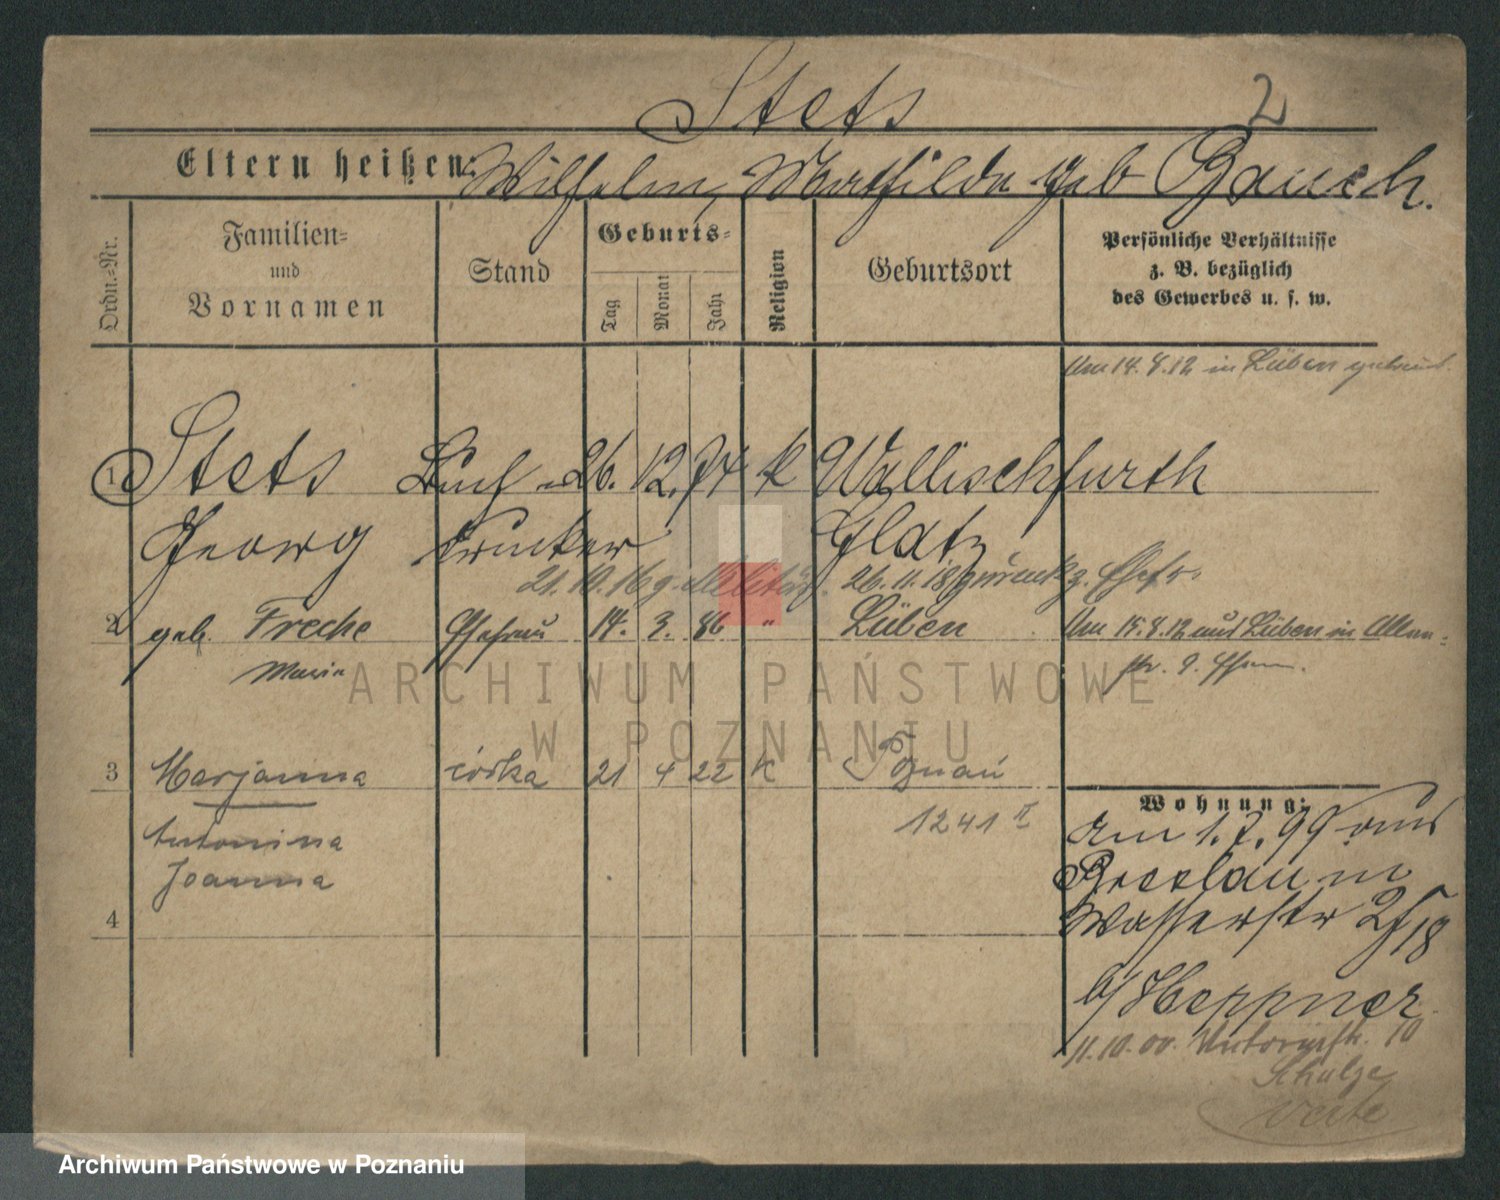 Stets 2
Eltern heißen: Wilhelm, Mathilde geb Bauch.
Ordn.=Nr.
Familien=
und
Vornamen
Stand
Geburts=
Tag
Monat
Jahr
Religion
Geburtsort
Persönliche Verhältnisse
z. B. bezüglich
des Gewerbes u. s. w.
Am 14.8.12 in Lüben getraut.
1 Stets Buch- 26. 12. 74 k Wallischfurth
Georg drucker Glatz
21.10.16 z. Militär. 26.11.18 zurück z. Ehefr.
2 geb. Freche Ehefrau 14. 3. 86 " Lüben Am 15.8.12 aus Lüben in
Marie
3 Marjanna córka 21 4 22 k Poznań
1241 II
Antonina
Joanna
4
Wohnung:
Am 1.7.99 aus
Breslau in
Wasserstr 25/18
b/Heppner.
11.10.00. Victoriastr. 10
Schulze
ARCHIWUM PAŃSTWOWE
W POZNANIU
Archiwum Państwowe w Poznaniu